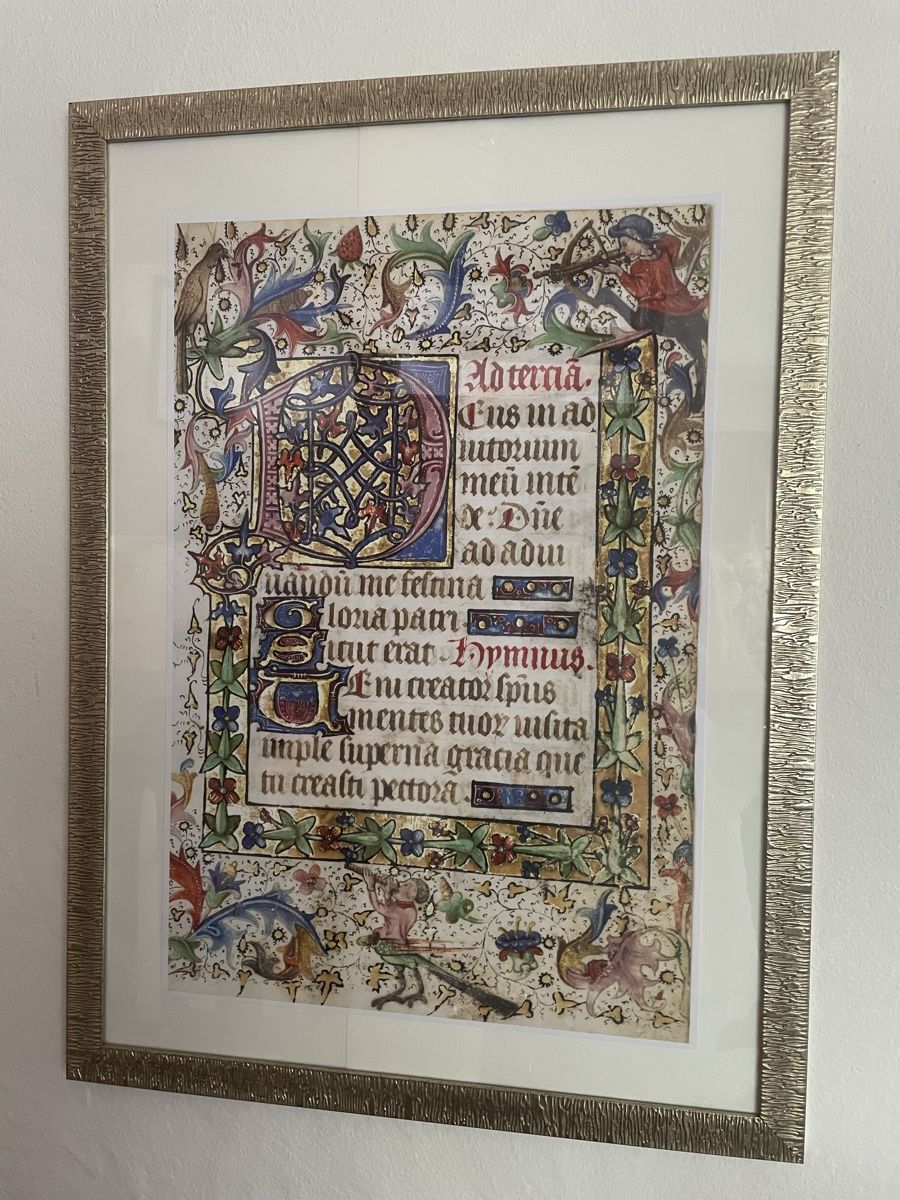 Ad terciā.
Deus in ad
iutorium
meū intē
de: Dn̄e
ad adiu
uandū me festina
Gloria patri
Sicut erat Hymnus.
Ueni creator sp̄us
mentes tuoꝝ uisita
imple superna gracia que
tu creasti pectora